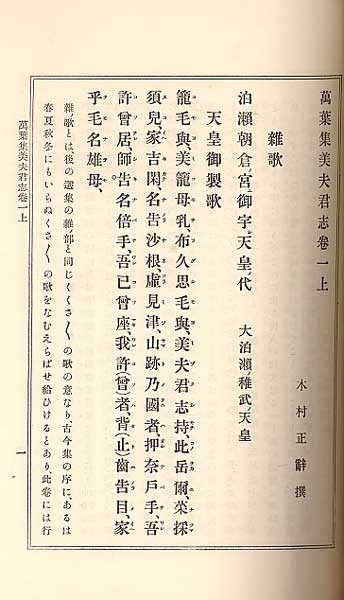 萬葉集美夫君志卷一上
木村正辭撰
雜歌
泊瀨朝倉宮御宇天皇代 大泊瀨稚武天皇
天皇御製歌
籠毛與、美籠母乳、布久思毛與、美夫君志持、此岳爾、菜採
須兒、家吉閑、名告沙根、虛見津、山跡乃國者、押奈戶手、吾
許曾居、師告名倍手、吾已曾座、我許(曾)者、背(止)齒告目、家
乎毛名雄母、
雜ノ歌とは、後の選集の雜ノ部と同じくくさ〴〵の歌の意なり、古今集の序に、あるは
春夏秋冬にもいらぬくさ〴〵の歌をなむえらばせ給ひけるとあり、此卷には行
萬葉集美夫君志卷一上
一